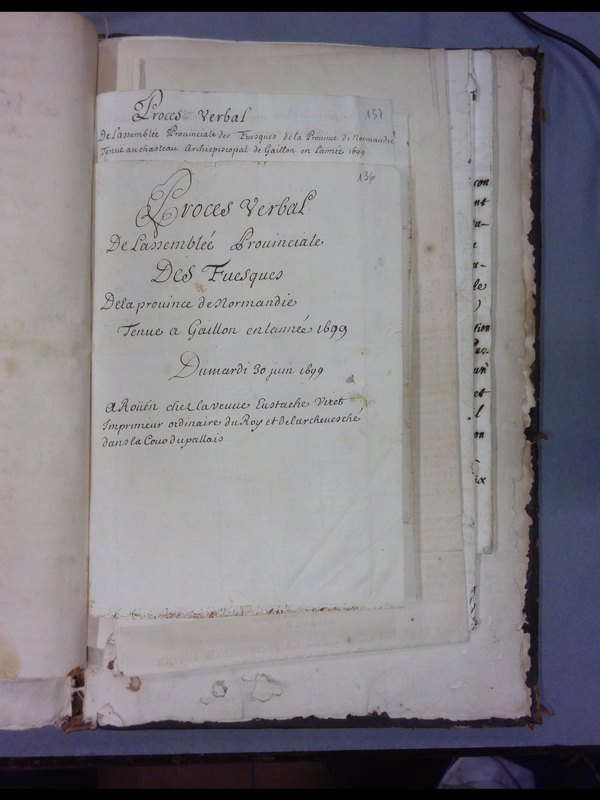 Proces Verbal
137
De Lassemblée Prouinciale des Euesques de la Prouince de Normandie
Tenue au chasteau Archiepiscopal de Gaillon en Lannée 1699
136
Proces Verbal
De Lassemblée Prouinciale
Des Euesques
Dela prouince de Normandie
Tenue a Gaillon en lannée 1699
Du mardi 30 juin 1699
A Roüen chez la veuue Eustache Viret
Imprimeur ordinaire du Roy et de larcheuesché
dans la Cour du pallais
ion
nt
le
tion
et
on